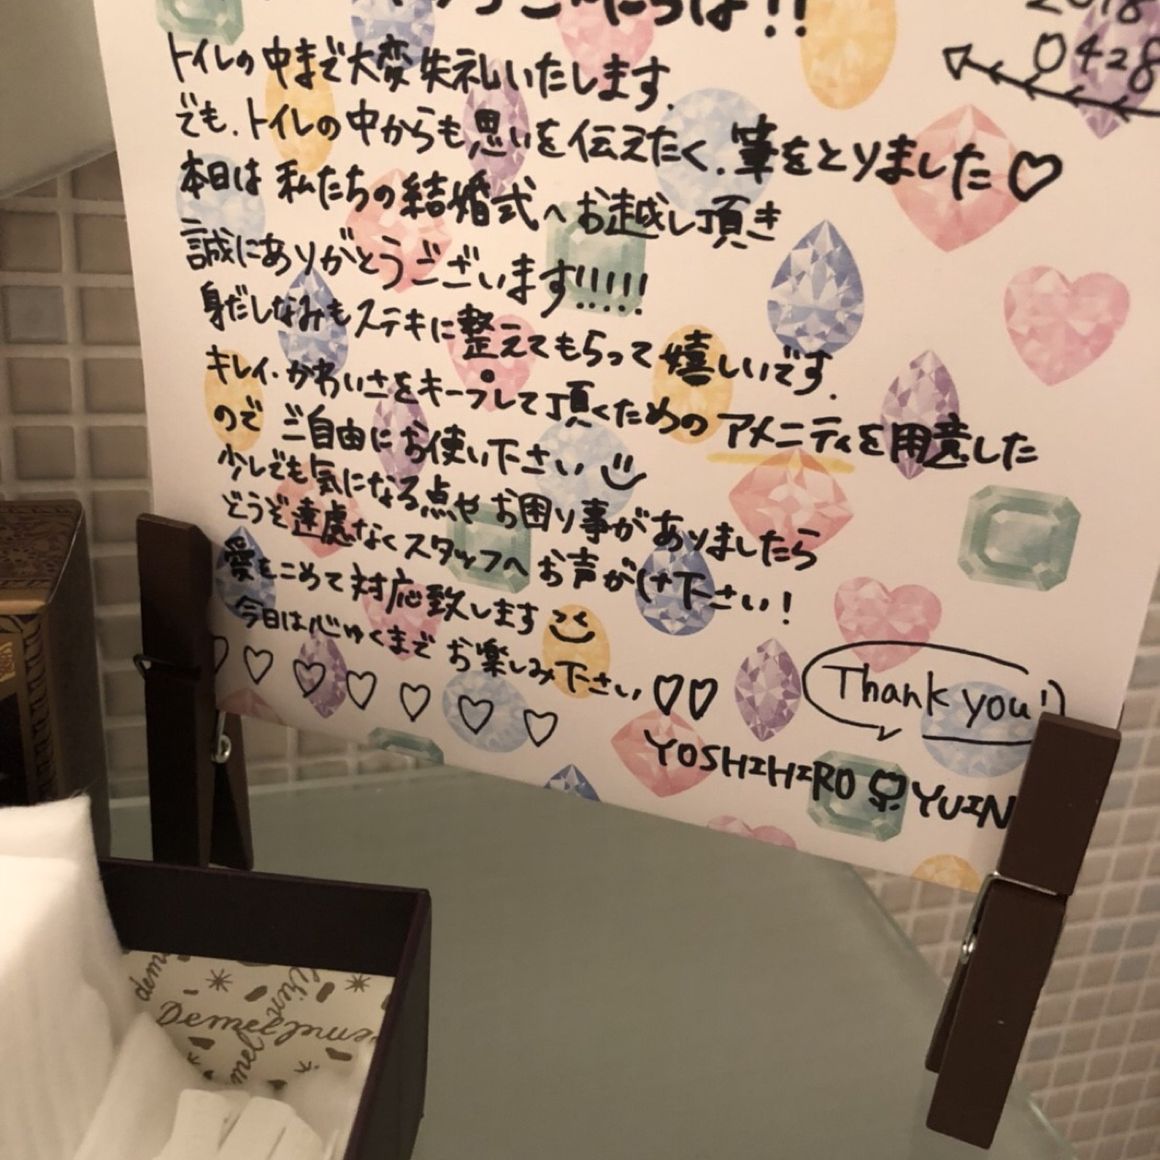 は!!
2018
0428
トイレの中まで大変失礼いたします.
でも、トイレの中からも思いを伝えたく、筆をとりました♡
本日は私たちの結婚式へお越し頂き
誠にありがとうございます!!!!!
身だしなみもステキに整えてもらって嬉しいです.
キレイ・かわいさをキープして頂くためのアメニティを用意した
のでご自由にお使い下さい
少しでも気になる点やお困り事がありましたら
どうぞ遠慮なくスタッフへお声がけ下さい!
愛をこめて対応致します
今日は心ゆくまでお楽しみ下さい♡♡
♡♡♡♡♡♡♡
Thank you!
YOSHIHIRO YUIN
Demel